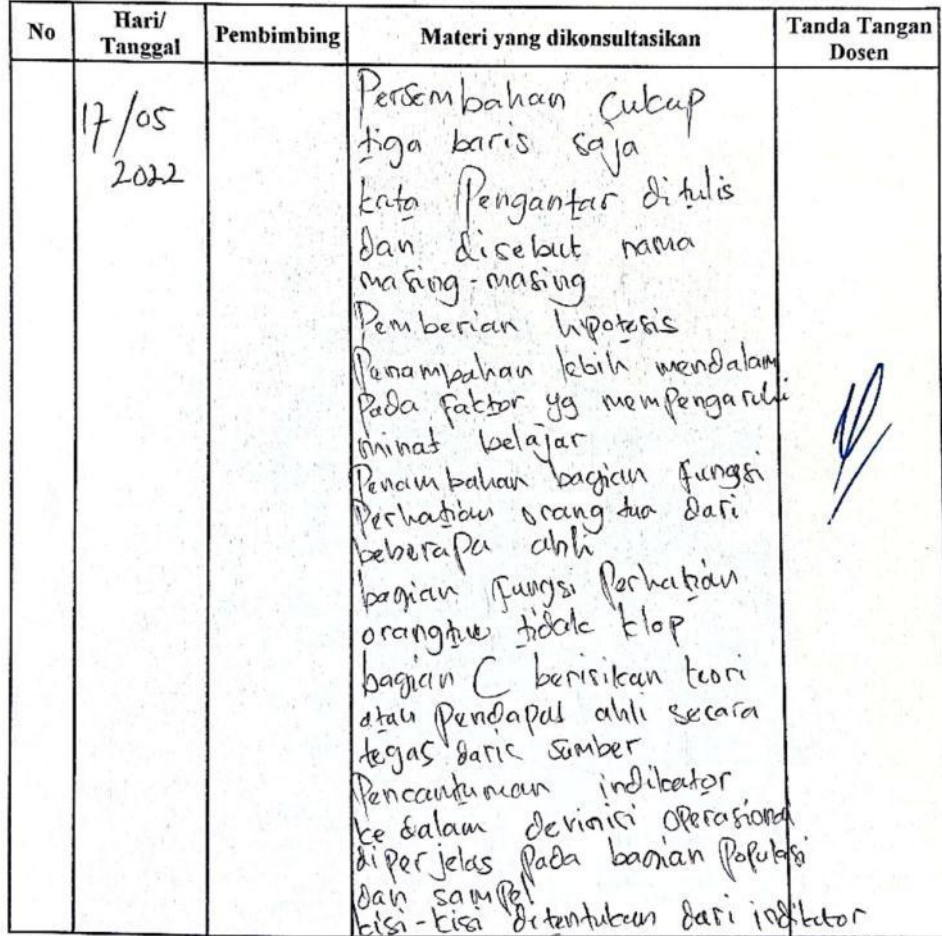 No
Hari/
Tanggal
Pembimbing
Materi yang dikonsultasikan
Tanda Tangan
Dosen
17/05
2022
Persembahan Cukup
tiga baris saja
kata Pengantar ditulis
dan disebut nama
masing-masing
Pemberian hipotesis
Penambahan lebih mendalam
Pada faktor yg mempengaruhi
minat belajar
Penambahan bagian fungsi
Perhatian orang tua dari
beberapa ahli
bagian fungsi Perhatian
orangtua tidak klop
bagian C berisikan teori
atau Pendapat ahli secara
tegas daric sumber
Pencantuman indikator
ke dalam devinisi operasional
diperjelas pada bagian Populasi
dan sampel
kisi-kisi ditentukan dari indikator